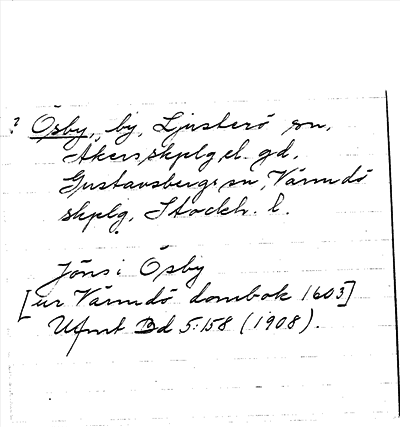 ? Ösby, by, Ljusterö sn,
Åkers skplg el. gd,
Gustavsbergs sn, Värmdö
skplg, Stockh. l.
Jöns i Ösby
[ur Värmdö dombok 1603]
Ufmt Bd 5:158 (1908).